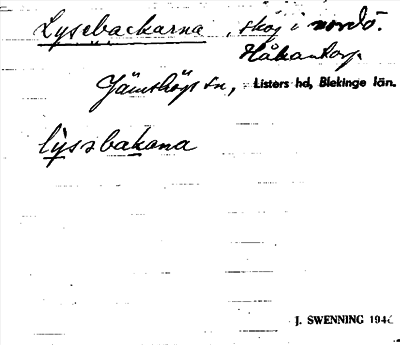 Lysebackarna, skog i nordö.
Håkantorp.
Jämshögs sn, Listers hd, Blekinge län.
lyssbakana
J. SWENNING 194